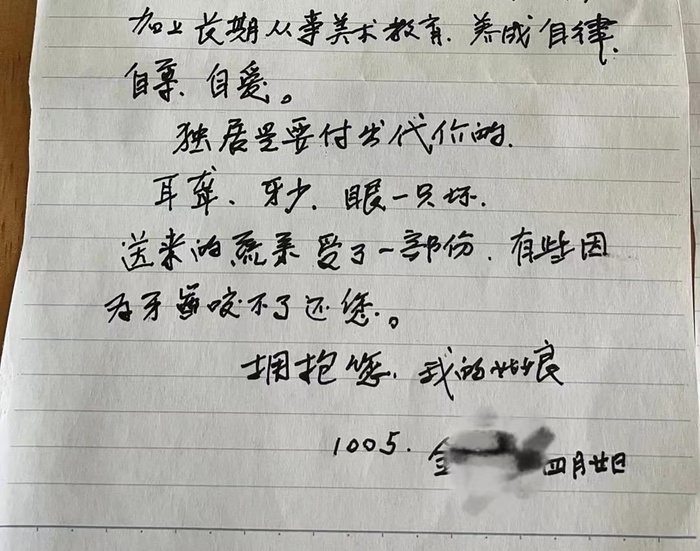 加上长期从事美术教育.养成自律.
自尊.自爱。
独居是要付出代价的.
耳聋、牙少.眼一只坏.
送来的蔬菜受了一部份.有些因
为牙齿咬不了还您.。
拥抱您.我的姑娘
1005. 金 四月廿日